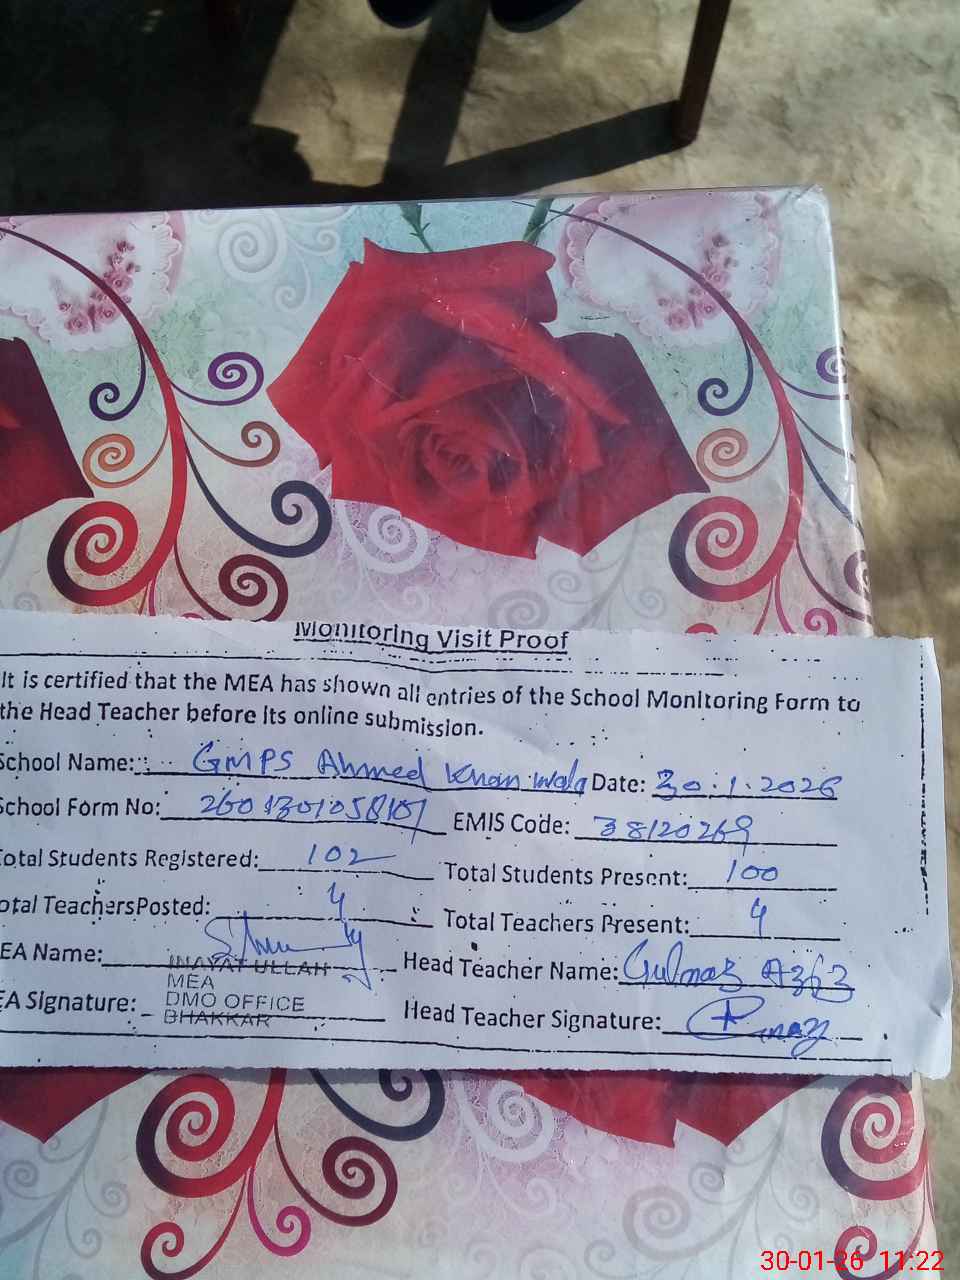 Monitoring Visit Proof
It is certified that the MEA has shown all entries of the School Monitoring Form to
the Head Teacher before its online submission.
School Name: GMPS Ahmed Khan wala Date: 30.1.2026
School Form No: EMIS Code: 38120269
Total Students Registered: 102 Total Students Present: 100
otal TeachersPosted: 4 Total Teachers Present: 4
EA Name: Head Teacher Name: Gulnaz
INAYAT ULLAH
MEA
EA Signature: DMO OFFICE Head Teacher Signature:
BHAKKAR
30-01-26 11:22